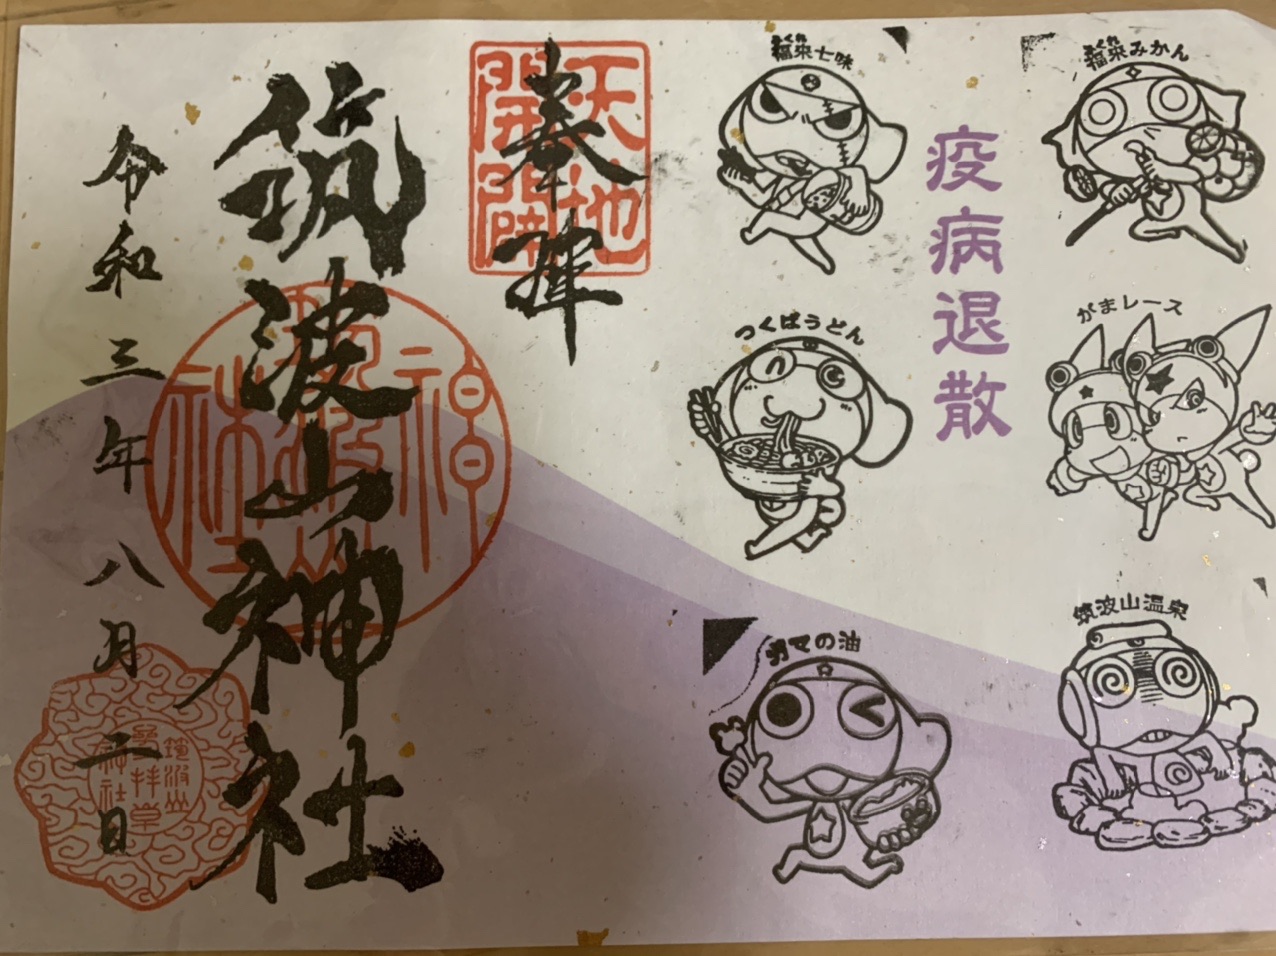 奉拝
天地
開闢
筑波山神社
令和三年八月二日
疫病退散
ふくれ
福来みかん
がまレース
筑波山温泉
ふくれ
福来七味
つくばうどん
ガマの油